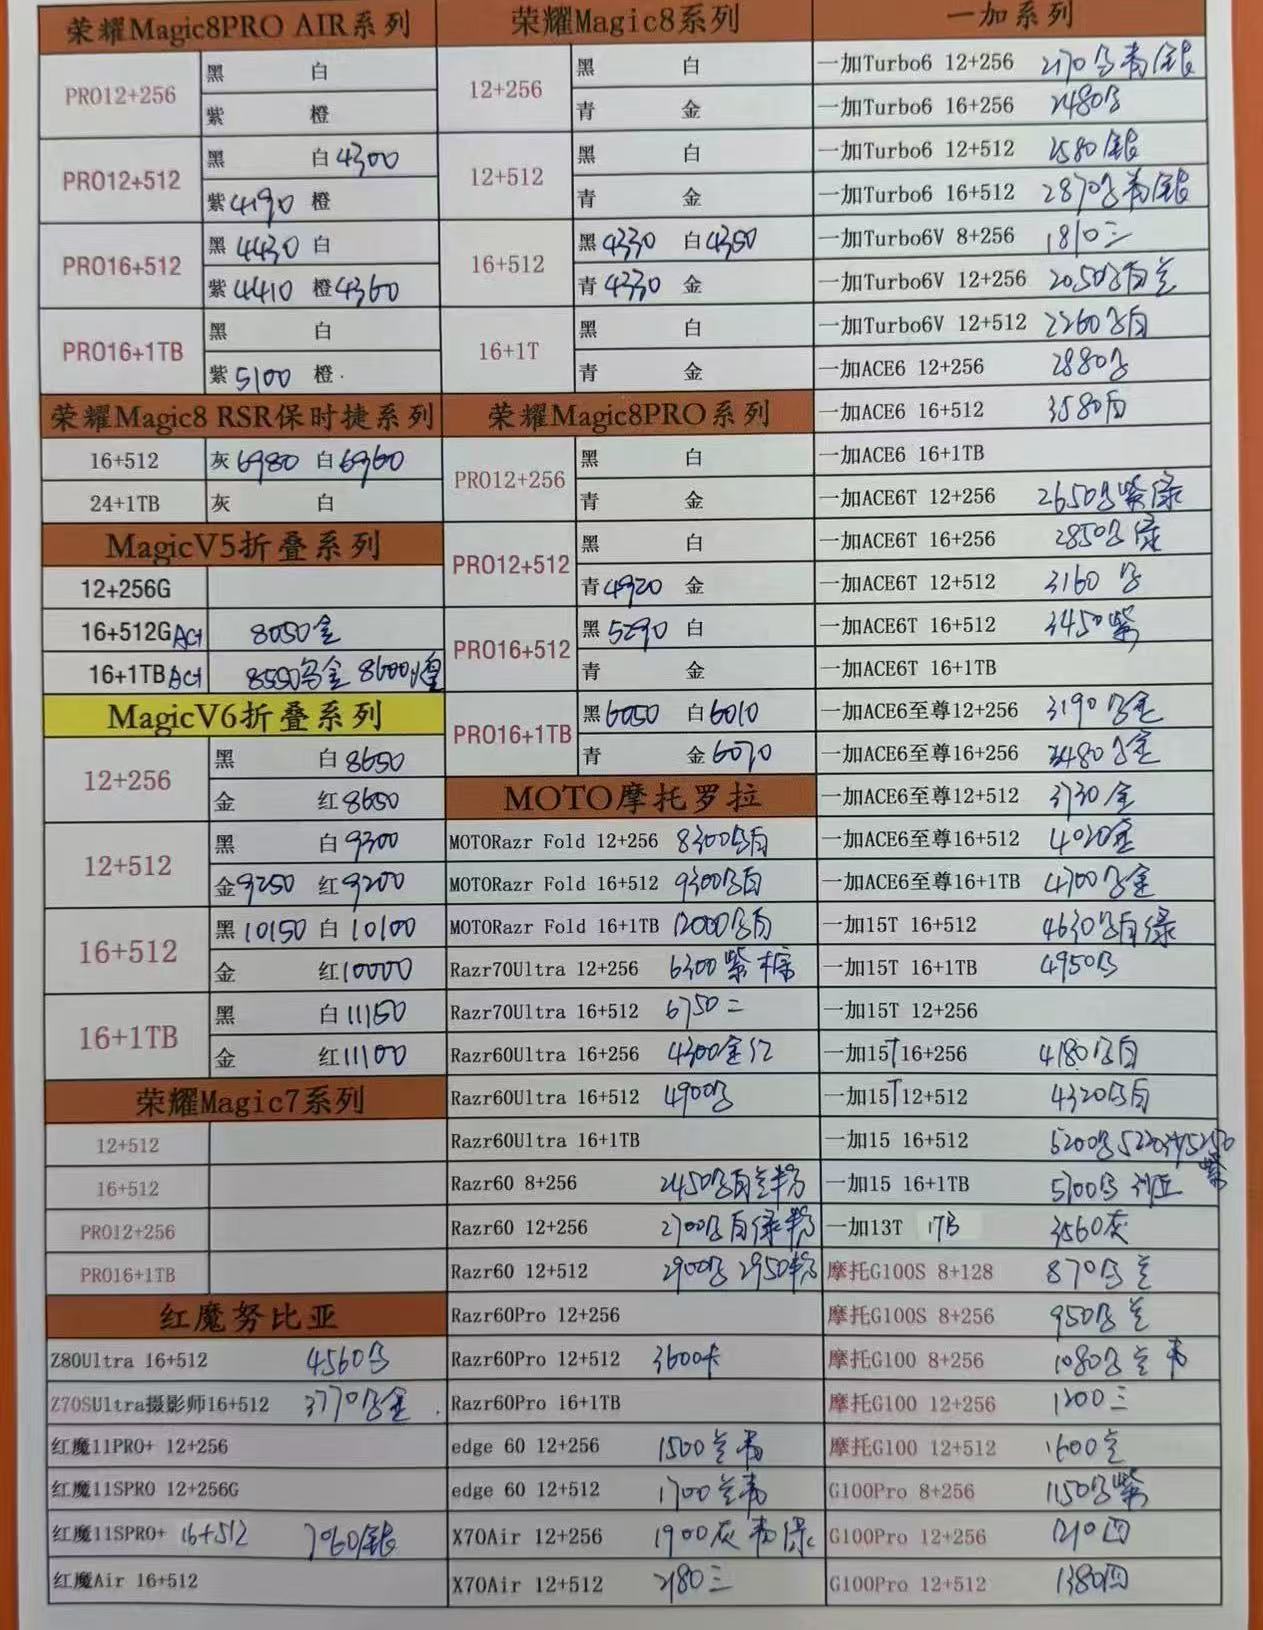 荣耀Magic8PRO AIR系列
PRO12+256
黑 白
紫 橙
PRO12+512
黑 白4300
紫4190 橙
PRO16+512
黑4430 白
紫4410 橙4360
PRO16+1TB
黑 白
紫5100 橙
荣耀Magic8 RSR保时捷系列
16+512 灰6980 白6960
24+1TB 灰 白
MagicV5折叠系列
12+256G
16+512G 8050金
16+1TB 8550马金 8600煌
MagicV6折叠系列
12+256
黑 白8650
金 红8650
12+512
黑 白9300
金9250 红9200
16+512
黑10150 白10100
金 红10000
16+1TB
黑 白11150
金 红11100
荣耀Magic7系列
12+512
16+512
PRO12+256
PRO16+1TB
红魔努比亚
Z80Ultra 16+512 4560马
Z70SUltra摄影师16+512 3770马金
红魔11PRO+ 12+256
红魔11SPRO 12+256G
红魔11SPRO+ 16+512 7060银
红魔Air 16+512
荣耀Magic8系列
12+256
黑 白
青 金
12+512
黑 白
青 金
16+512
黑4330 白4350
青4330 金
16+1T
黑 白
青 金
荣耀Magic8PRO系列
PRO12+256
黑 白
青 金
PRO12+512
黑 白
青4920 金
PRO16+512
黑5290 白
青 金
PRO16+1TB
黑6050 白6010
青 金6070
MOTO摩托罗拉
MOTORazr Fold 12+256 8300马白
MOTORazr Fold 16+512 9300马白
MOTORazr Fold 16+1TB 12000马白
Razr70Ultra 12+256 6300紫棕
Razr70Ultra 16+512 6750二
Razr60Ultra 16+256 4300金红
Razr60Ultra 16+512 4900马
Razr60Ultra 16+1TB
Razr60 8+256 2450马白兰粉
Razr60 12+256 2700马白绿粉
Razr60 12+512 2900马 2950粉
Razr60Pro 12+256
Razr60Pro 12+512 3600卡
Razr60Pro 16+1TB
edge 60 12+256 1500兰青
edge 60 12+512 1700兰青
X70Air 12+256 1900灰青绿
X70Air 12+512 2180三
一加系列
一加Turbo6 12+256 2170马青银
一加Turbo6 16+256 2480马
一加Turbo6 12+512 2580银
一加Turbo6 16+512 2870马青银
一加Turbo6V 8+256 1810三
一加Turbo6V 12+256 2050马白兰
一加Turbo6V 12+512 2260马白
一加ACE6 12+256 2880马
一加ACE6 16+512 3580白
一加ACE6 16+1TB
一加ACE6T 12+256 2650马紫绿
一加ACE6T 16+256 2850马绿
一加ACE6T 12+512 3160马
一加ACE6T 16+512 3450紫
一加ACE6T 16+1TB
一加ACE6至尊12+256 3190马金
一加ACE6至尊16+256 3480马金
一加ACE6至尊12+512 3730金
一加ACE6至尊16+512 4020金
一加ACE6至尊16+1TB 4700马金
一加15T 16+512 4630马白绿
一加15T 16+1TB 4950马
一加15T 12+256
一加15T 16+256 4180马白
一加15T 12+512 4320马白
一加15 16+512 5200马 5220 5250紫
一加15 16+1TB 5700马
一加13T 1TB 3560灰
摩托G100S 8+128 870马兰
摩托G100S 8+256 950马兰
摩托G100 8+256 1080马兰青
摩托G100 12+256 1200三
摩托G100 12+512 1600兰
G100Pro 8+256 1150马紫
G100Pro 12+256 1210四
G100Pro 12+512 1380四